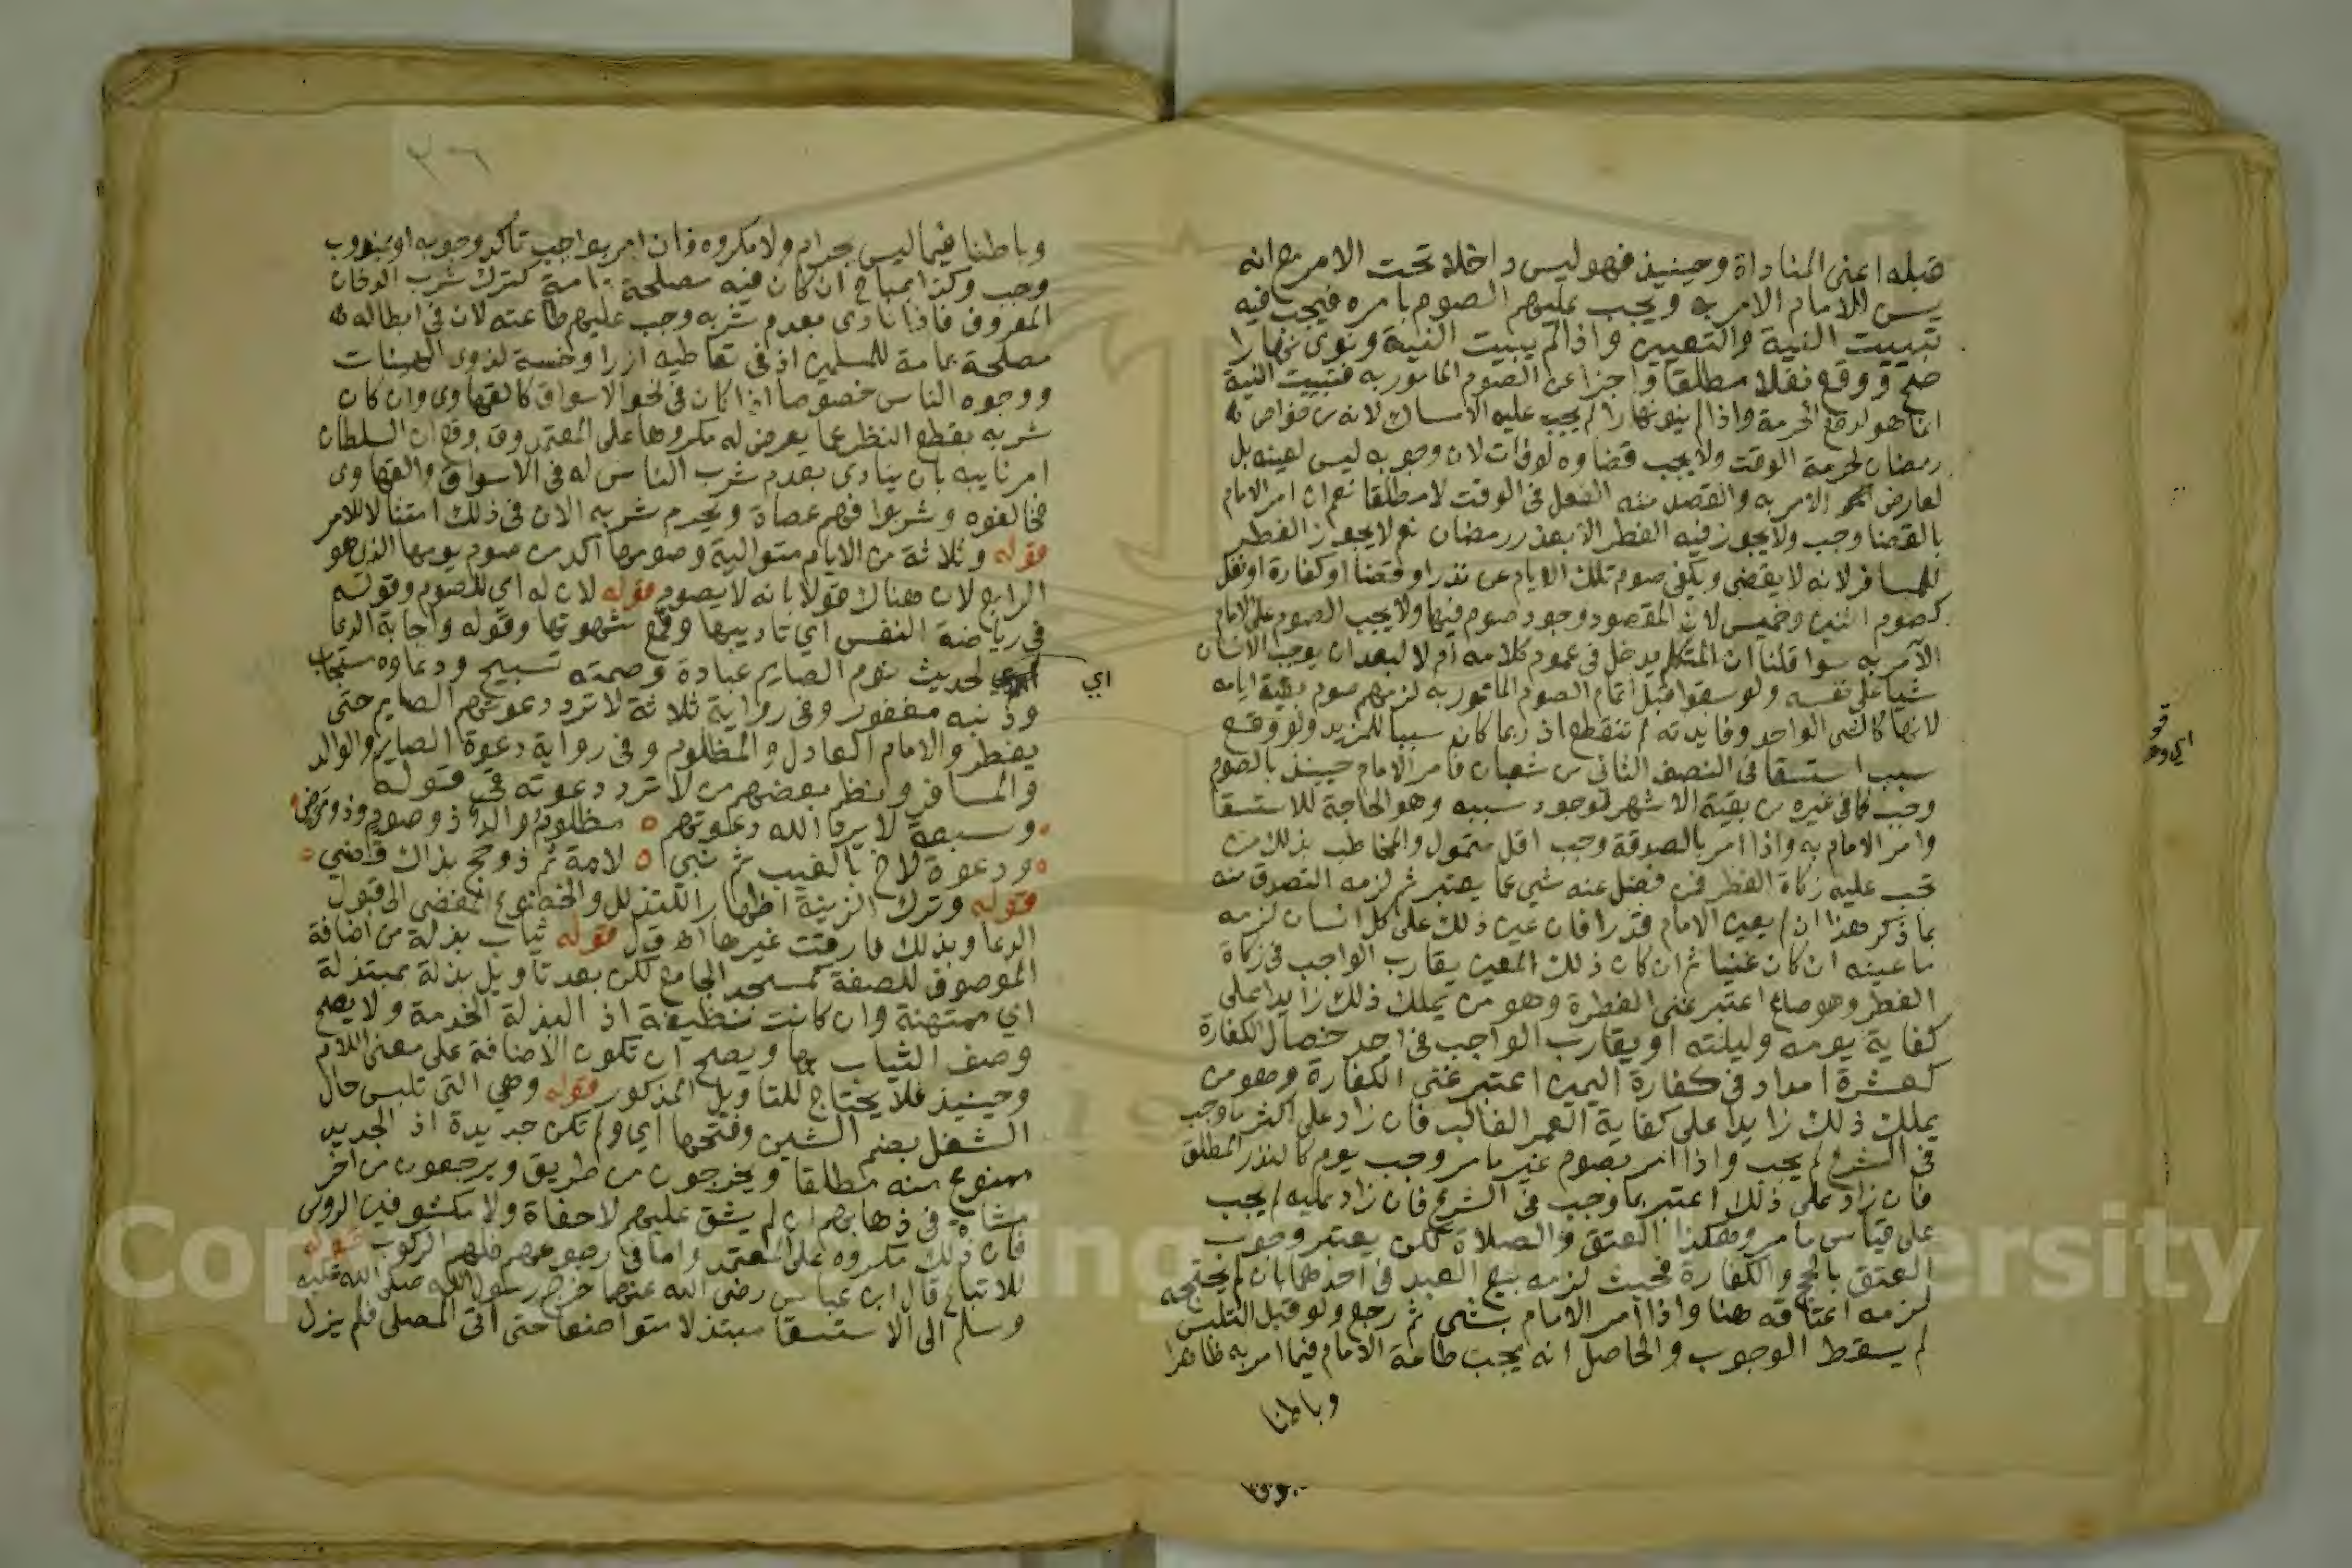 قبله اعنى المناداة وحينيذ فهو ليس داخلا تحت الامر مع انه
يسن للامام الامر به ويجب عليهم الصوم بامره فيجب فيه
تبييت النية والتعيين واذا لم يبيت النية ونوى نهارا
صح ووقع نفلا مطلقا واجزا عن الصوم المامور به فتبييت النية
انما هو لدفع الحرمة واذا لم ينو نهارا لم يجب عليه الامساك لانه من خواص
رمضان لحرمة الوقت ولا يجب قضاوه لو فات لان وجوبه ليس لعينه بل
لعارض الامر به والقصد منه الفعل فى الوقت لا مطلقا نعم ان امر الامام
بالقضا وجب ولا يجوز فيه الفطر الا بعذر رمضان نعم لا يجوز الفطر
للمسافر لانه لا يقضى ويكفى صوم تلك الايام عن نذر او قضا او كفارة او نفل
كصوم اثنين وخميس لان المقصود وجود صوم فيها ولا يجب الصوم على الامام
الآمر به سوا قلنا ان المتكلم يدخل فى عموم كلامه ام لا لبعد ان يوجب الانسان
شيا على نفسه ولو سقوا قبل اتمام الصوم المامور به لزمهم صوم بقية ايامه
لانها كالشى الواحد وفايدته لم تنقطع اذ ربما كان سببا للمزيد ولو وقع
سبب استسقا فى النصف الثانى من شعبان فامر الامام حينيذ بالصوم
وجب كما فى غيره من بقية الاشهر لوجود سببه وهو الحاجة للاستسقا
وامر الامام به واذا امر بالصدقة وجب اقل متمول والمخاطب بذلك من
تجب عليه زكاة الفطر فمن فضل عنه شي عما يعتبر ثم لزمه التصدق منه
بما ذكر هذا ان لم يعين الامام قدرا فان عين ذلك على كل انسان لزمه
ما عينه ان كان غنيا ثم ان كان ذلك المعين يقارب الواجب فى زكاة
الفطر وهو صاع اعتبر غنى الفطرة وهو من يملك ذلك زايدا على
كفاية يومه وليلته او يقارب الواجب فى احد خصال الكفارة
كعشرة امداد فى كفارة اليمين اعتبر غنى الكفارة وهو من
يملك ذلك زايدا على كفاية العمر الغالب فان زاد على اكثر ما وجب
فى الشرع لم يجب واذا امر بصوم غير ما مر وجب يوم كالنذر المطلق
فان زاد على ذلك اعتبر بما وجب فى الشرع فان زاد عليه لم يجب
على قياس ما مر وهكذا العتق والصلاة لكن يعتبر وجوب
العتق بالحج والكفارة فحيث لزمه بيع العبد فى احدهما بان لم يحتجه
لزمه اعتاقه هنا واذا امر الامام بشى ثم رجع ولو قبل التلبس
لم يسقط الوجوب والحاصل انه يجب طاعة الامام فيما امر به ظاهرا
وباطنا
وباطنا فيما ليس بحرام ولا مكروه فان امر بواجب تاكد وجوبه او بمندوب
وجب وكذا بمباح ان كان فيه مصلحة عامة كترك شرب الدخان
المعروف فاذا نادى بعدم شربه وجب عليهم طاعته لان فى ابطاله
مصلحة عامة للمسلمين اذ فى تعاطيه ازرا وخسة لذوى الهيئات
ووجوه الناس خصوصا اذا كان فى نحو الاسواق كالقهاوى وان كان
شربه بقطع النظر عما يعرض له مكروها على المعتمد وقد وقع ان السلطان
امر نايبه بان ينادى بعدم شرب الناس له فى الاسواق والقهاوى
فخالفوه وشربوا فهم عصاة ويحرم شربه الان فى ذلك امتثالا للامر
قوله وثلاثة من الايام متوالية وصومها آكد من صوم يومها الذى هو
الرابع لان هناك قولا بانه لا يصوم قوله لان له اي للصوم وقوله
في رياضة النفس اي تاديبها وقمع شهوتها وقوله واجابة الدعا
اي
لحديث نوم الصايم عبادة وصمته تسبيح ودعاوه مستجاب
وذنبه مغفور وفى رواية ثلاثة لا ترد دعوتهم الصايم حتى
يفطر والامام العادل والمظلوم وفى رواية دعوة الصايم والوالد
والمسافر ونظم بعضهم من لا ترد دعوته فى قوله
وسبعة لا يرد الله دعوتهم مظلوم والد ذو صوم وذو مرض
ودعوة لاخ بالغيب ثم نبي لامة ثم ذو حج بذاك قضي
قوله وترك الزينة اظهارا للتذلل والخضوع المفضى الى قبول
الدعا وبذلك فارقت غيرها اهـ ق ل قوله ثياب بذلة من اضافة
الموصوف للصفة كمسجد الجامع لكن بعد تاويل بذلة بمبتذلة
اي ممتهنة وان كانت نظيفة اذ البذلة الخدمة ولا يصح
وصف الثياب بها ويصح ان تكون الاضافة على معنى اللام
وحينيذ فلا يحتاج للتاويل المذكور قوله وهي التى تلبس حال
الشغل بضم الشين وفتحها اي ولم تكن جديدة اذ الجديد
ممنوع منه مطلقا ويخرجون من طريق ويرجعون من اخر
مشاة فى ذهابهم ان لم يشق عليهم لا حفاة ولا مكشوفين الروس
فان ذلك مكروه على المعتمد واما فى رجوعهم فلهم الركوب قوله
للاتباع قال ابن عباس رضى الله عنهما خرج رسول الله صلى الله عليه
وسلم الى الاستسقا مبتذلا متواضعا حتى اتى المصلى فلم يزل